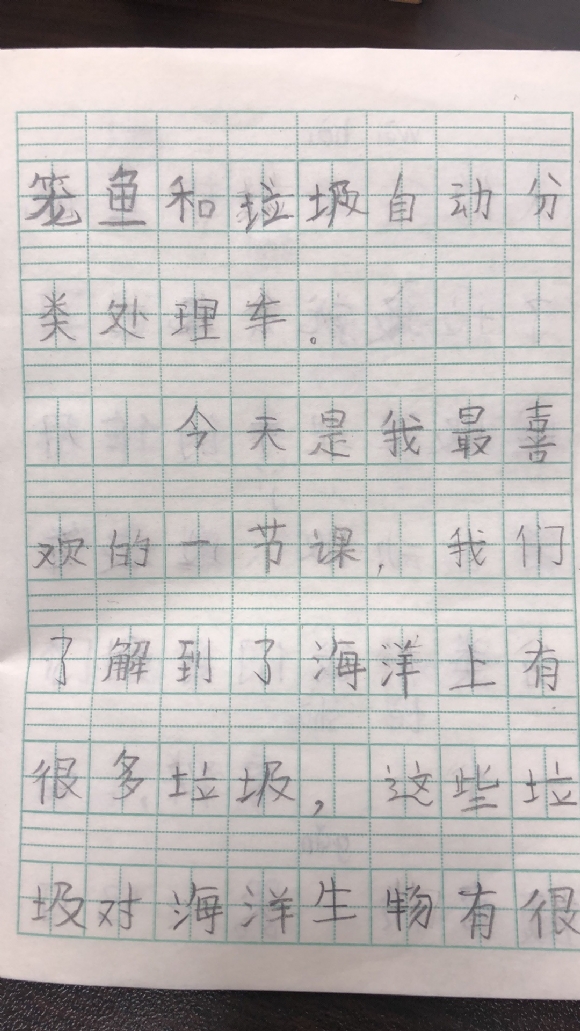 笼鱼和垃圾自动分
类处理车。
今天是我最喜
欢的一节课，我们
了解到了海洋上有
很多垃圾，这些垃
圾对海洋生物有很